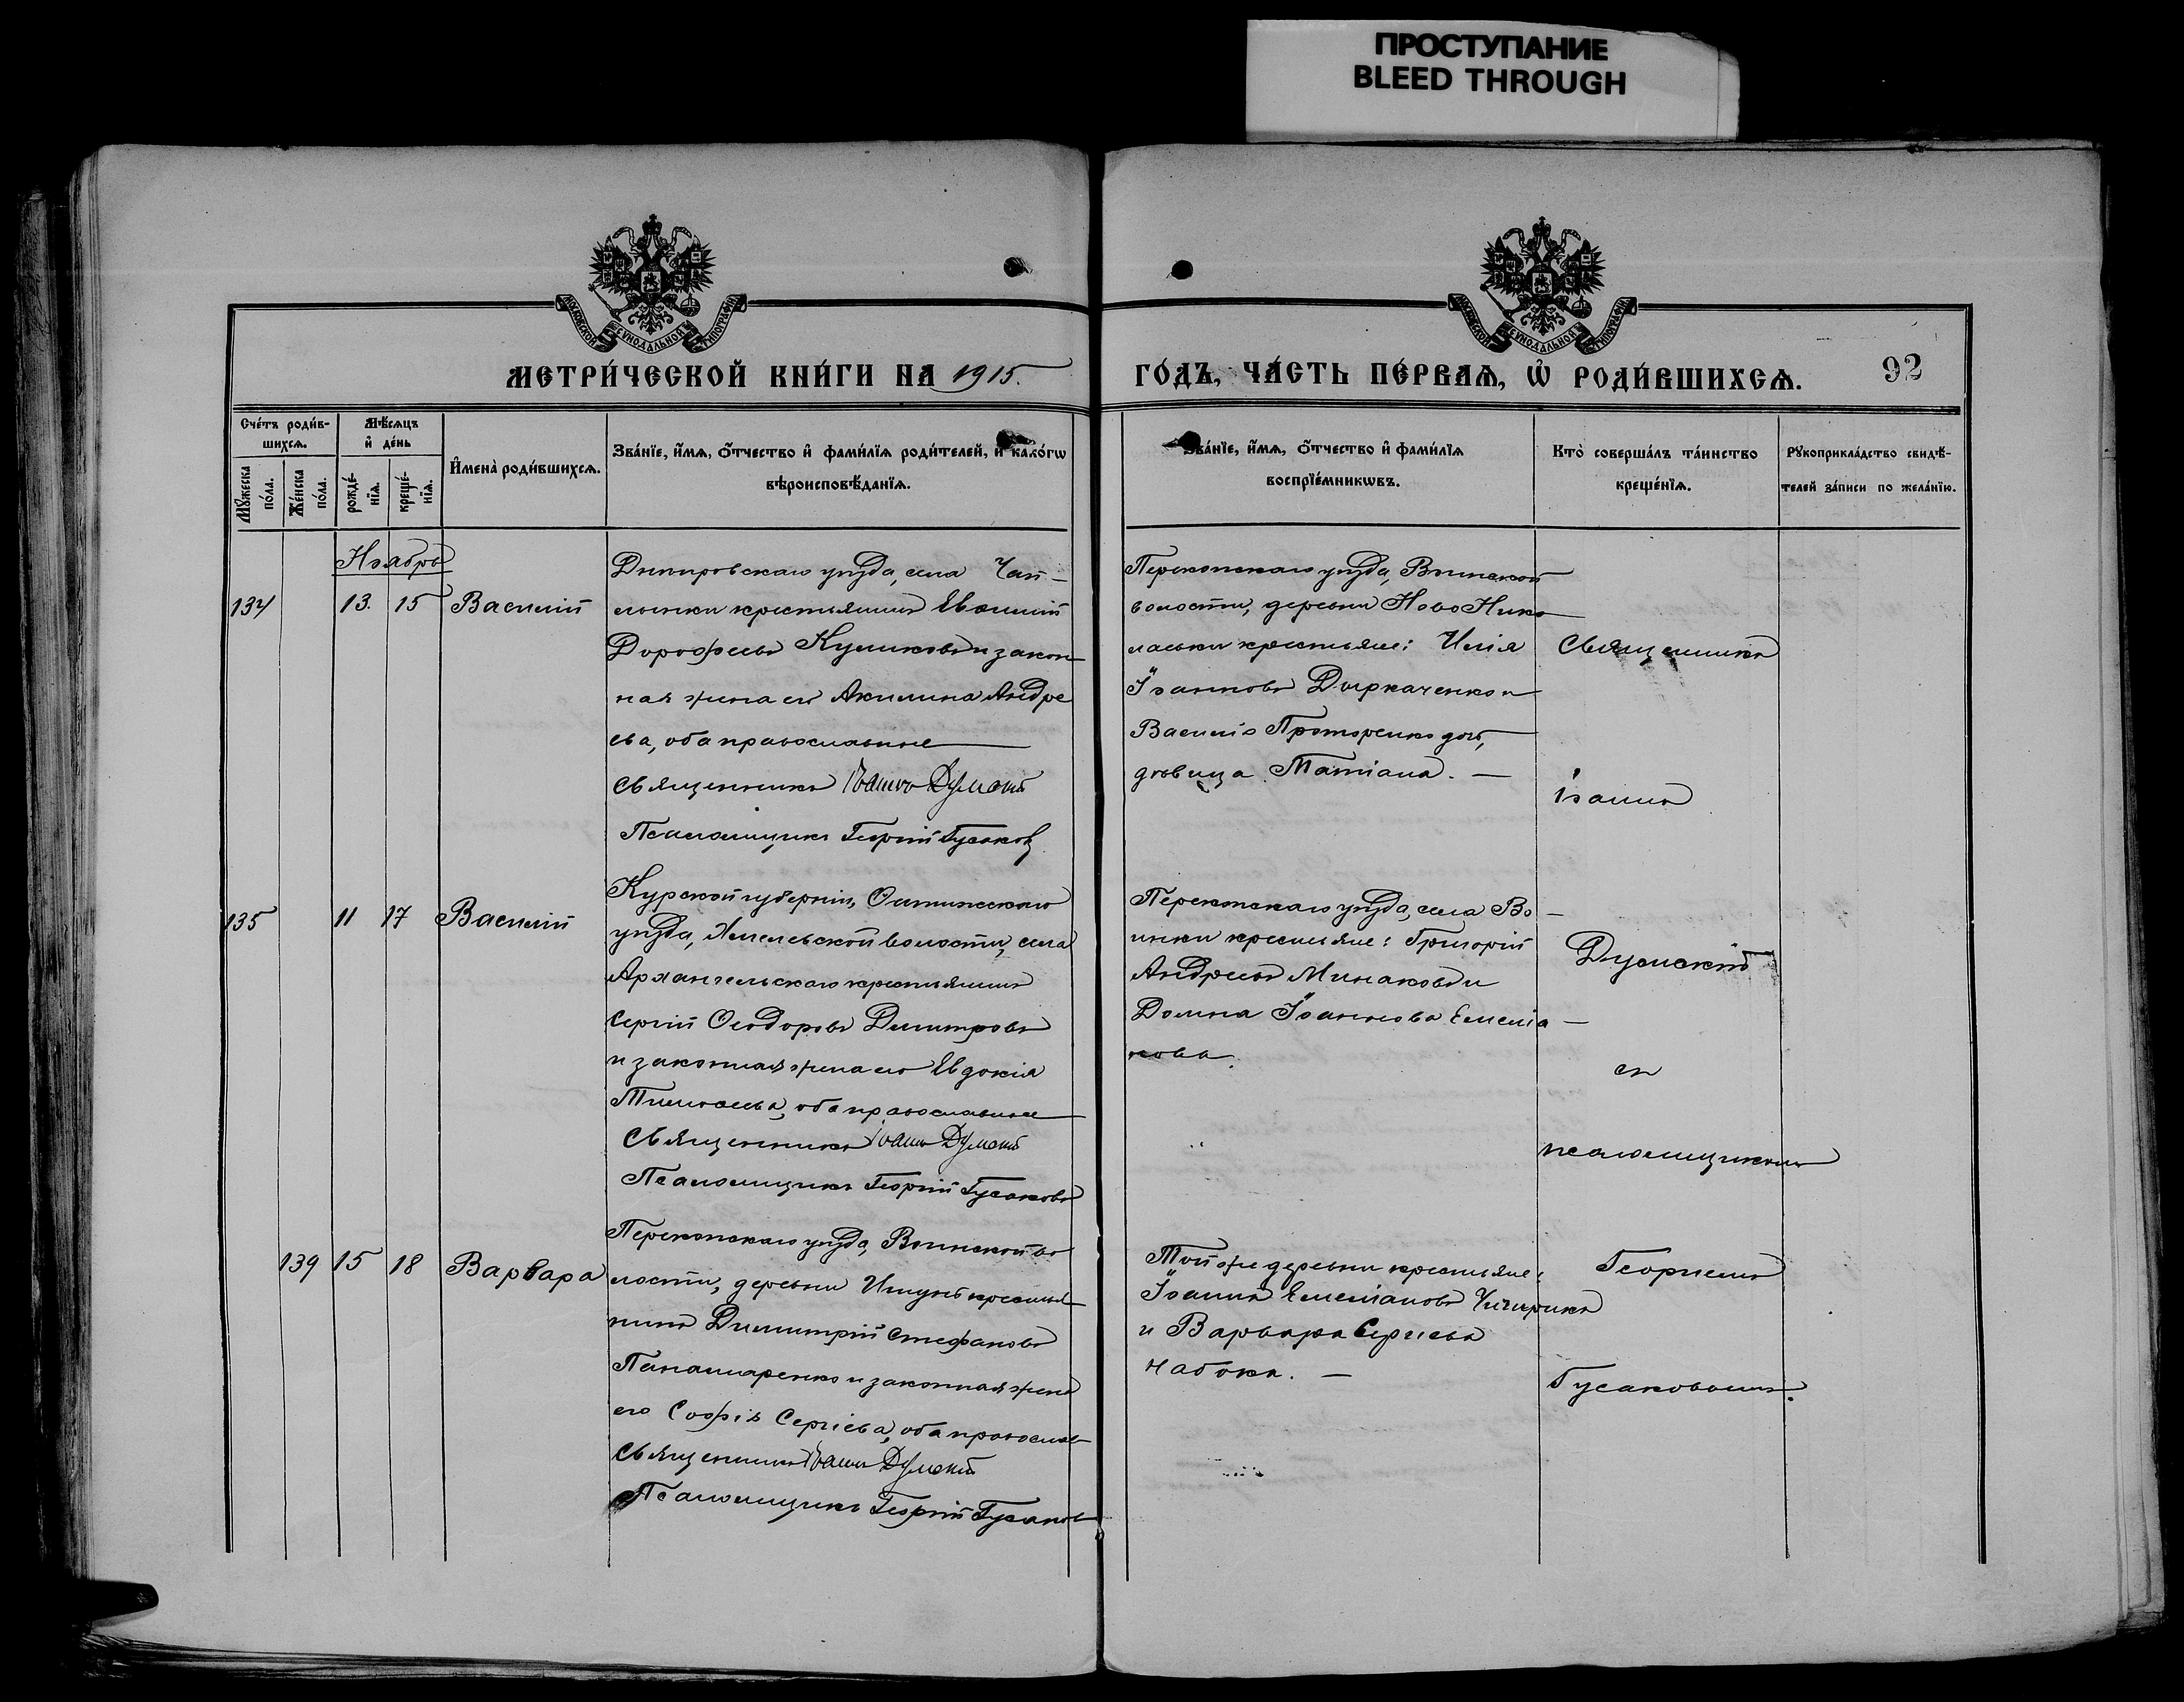 ПРОСТУПАНИЕ
BLEED THROUGH
МОСКОВСКОЙ СѴНОДАЛЬНОЙ ТИПОГРАФІИ
МОСКОВСКОЙ СѴНОДАЛЬНОЙ ТИПОГРАФІИ
МЕТРИ́ЧЕСКОЙ КНИ́ГИ НА 1915.
ГО́ДЪ, ЧА́СТЬ ПЕ́РВАѦ, Ѡ҆ РОДИ́ВШИХСѦ.
92
Сче́тъ роди́в-
шихсѧ.
Мꙋжеска по́ла.
Же́нска по́ла.
Мѣсѧцъ
и҆ де́нь
рожде́-
нїѧ.
креще́-
нїѧ.
И҆мена̀ роди́вшихсѧ.
Зва́нїе, и҆́мѧ, ѻ҆́тчество и҆ фами́лїѧ роди́телей, и҆ како́гѡ
вѣроисповѣ́данїѧ.
Зва́нїе, и҆́мѧ, ѻ҆́тчество и҆ фами́лїѧ
воспрїе́мникѡвъ.
Кто̀ соверша́лъ та́инство
креще́нїѧ.
Рꙋкоприкла́дство свидѣ́-
телей за́писи по жела́нїю.
Ноябрь
134 13. 15 Василій
Днѣпровскаго уѣзда, села Чап-
линки крестьянинъ Евѳимій
Дорофеевъ Куликовъ и закон
ная жена его Акилина Андре
ева, оба православные
Священникъ Іоаннъ Думскій
Псаломщикъ Георгій Гусаковъ
Перекопскаго уѣзда, Воинской
волости, деревни Ново Нико
лаевки крестьяне: Илія
Іоанновъ Дыркаченко и
Василія Проторенко дочь,
дѣвица Татіана. —
135 11 17 Василій
Курской губерніи,
уѣзда, волости, села
Архангельскаго крестьянинъ
Сергій Ѳеодоровъ Димитровъ
и законная жена его Евдокія
Тимоѳеева, оба православные
Священникъ Іоаннъ Думскій
Псаломщикъ Георгій Гусаковъ
Перекопскаго уѣзда, села Во-
инки крестьяне: Григорій
Андреевъ Минаковъ и
Домна Іоаннова Емелія-
нова.
139 15 18 Варвара
Перекопскаго уѣзда, Воинской во
лости, деревни Ишунь крестья
нинъ Димитрій Стефановъ
Панамаренко и законная жена
его Софія Сергіева, оба православ
Священникъ Іоаннъ Думскій
Псаломщикъ Георгій Гусаковъ
Той же деревни крестьяне:
Іоаннъ Емеліановъ Чигирикъ
и Варвара Сергіева
Набока. —
Священникъ
Іоаннъ
Думскій
съ
псаломщикомъ
Георгіемъ
Гусаковымъ.